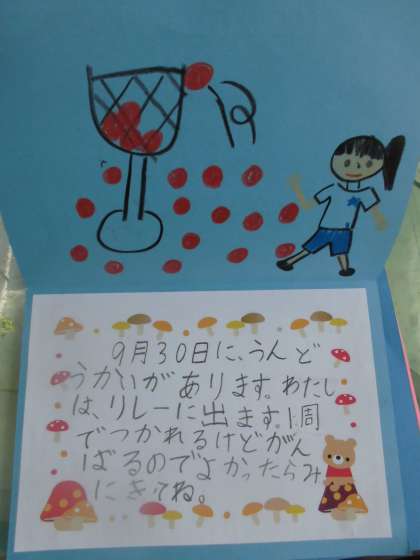 9月30日に、うんど
うかいがあります。わたし
は、リレーに出ます。1周
でつかれるけどがん
ばるのでよかったらみ
にきてね。